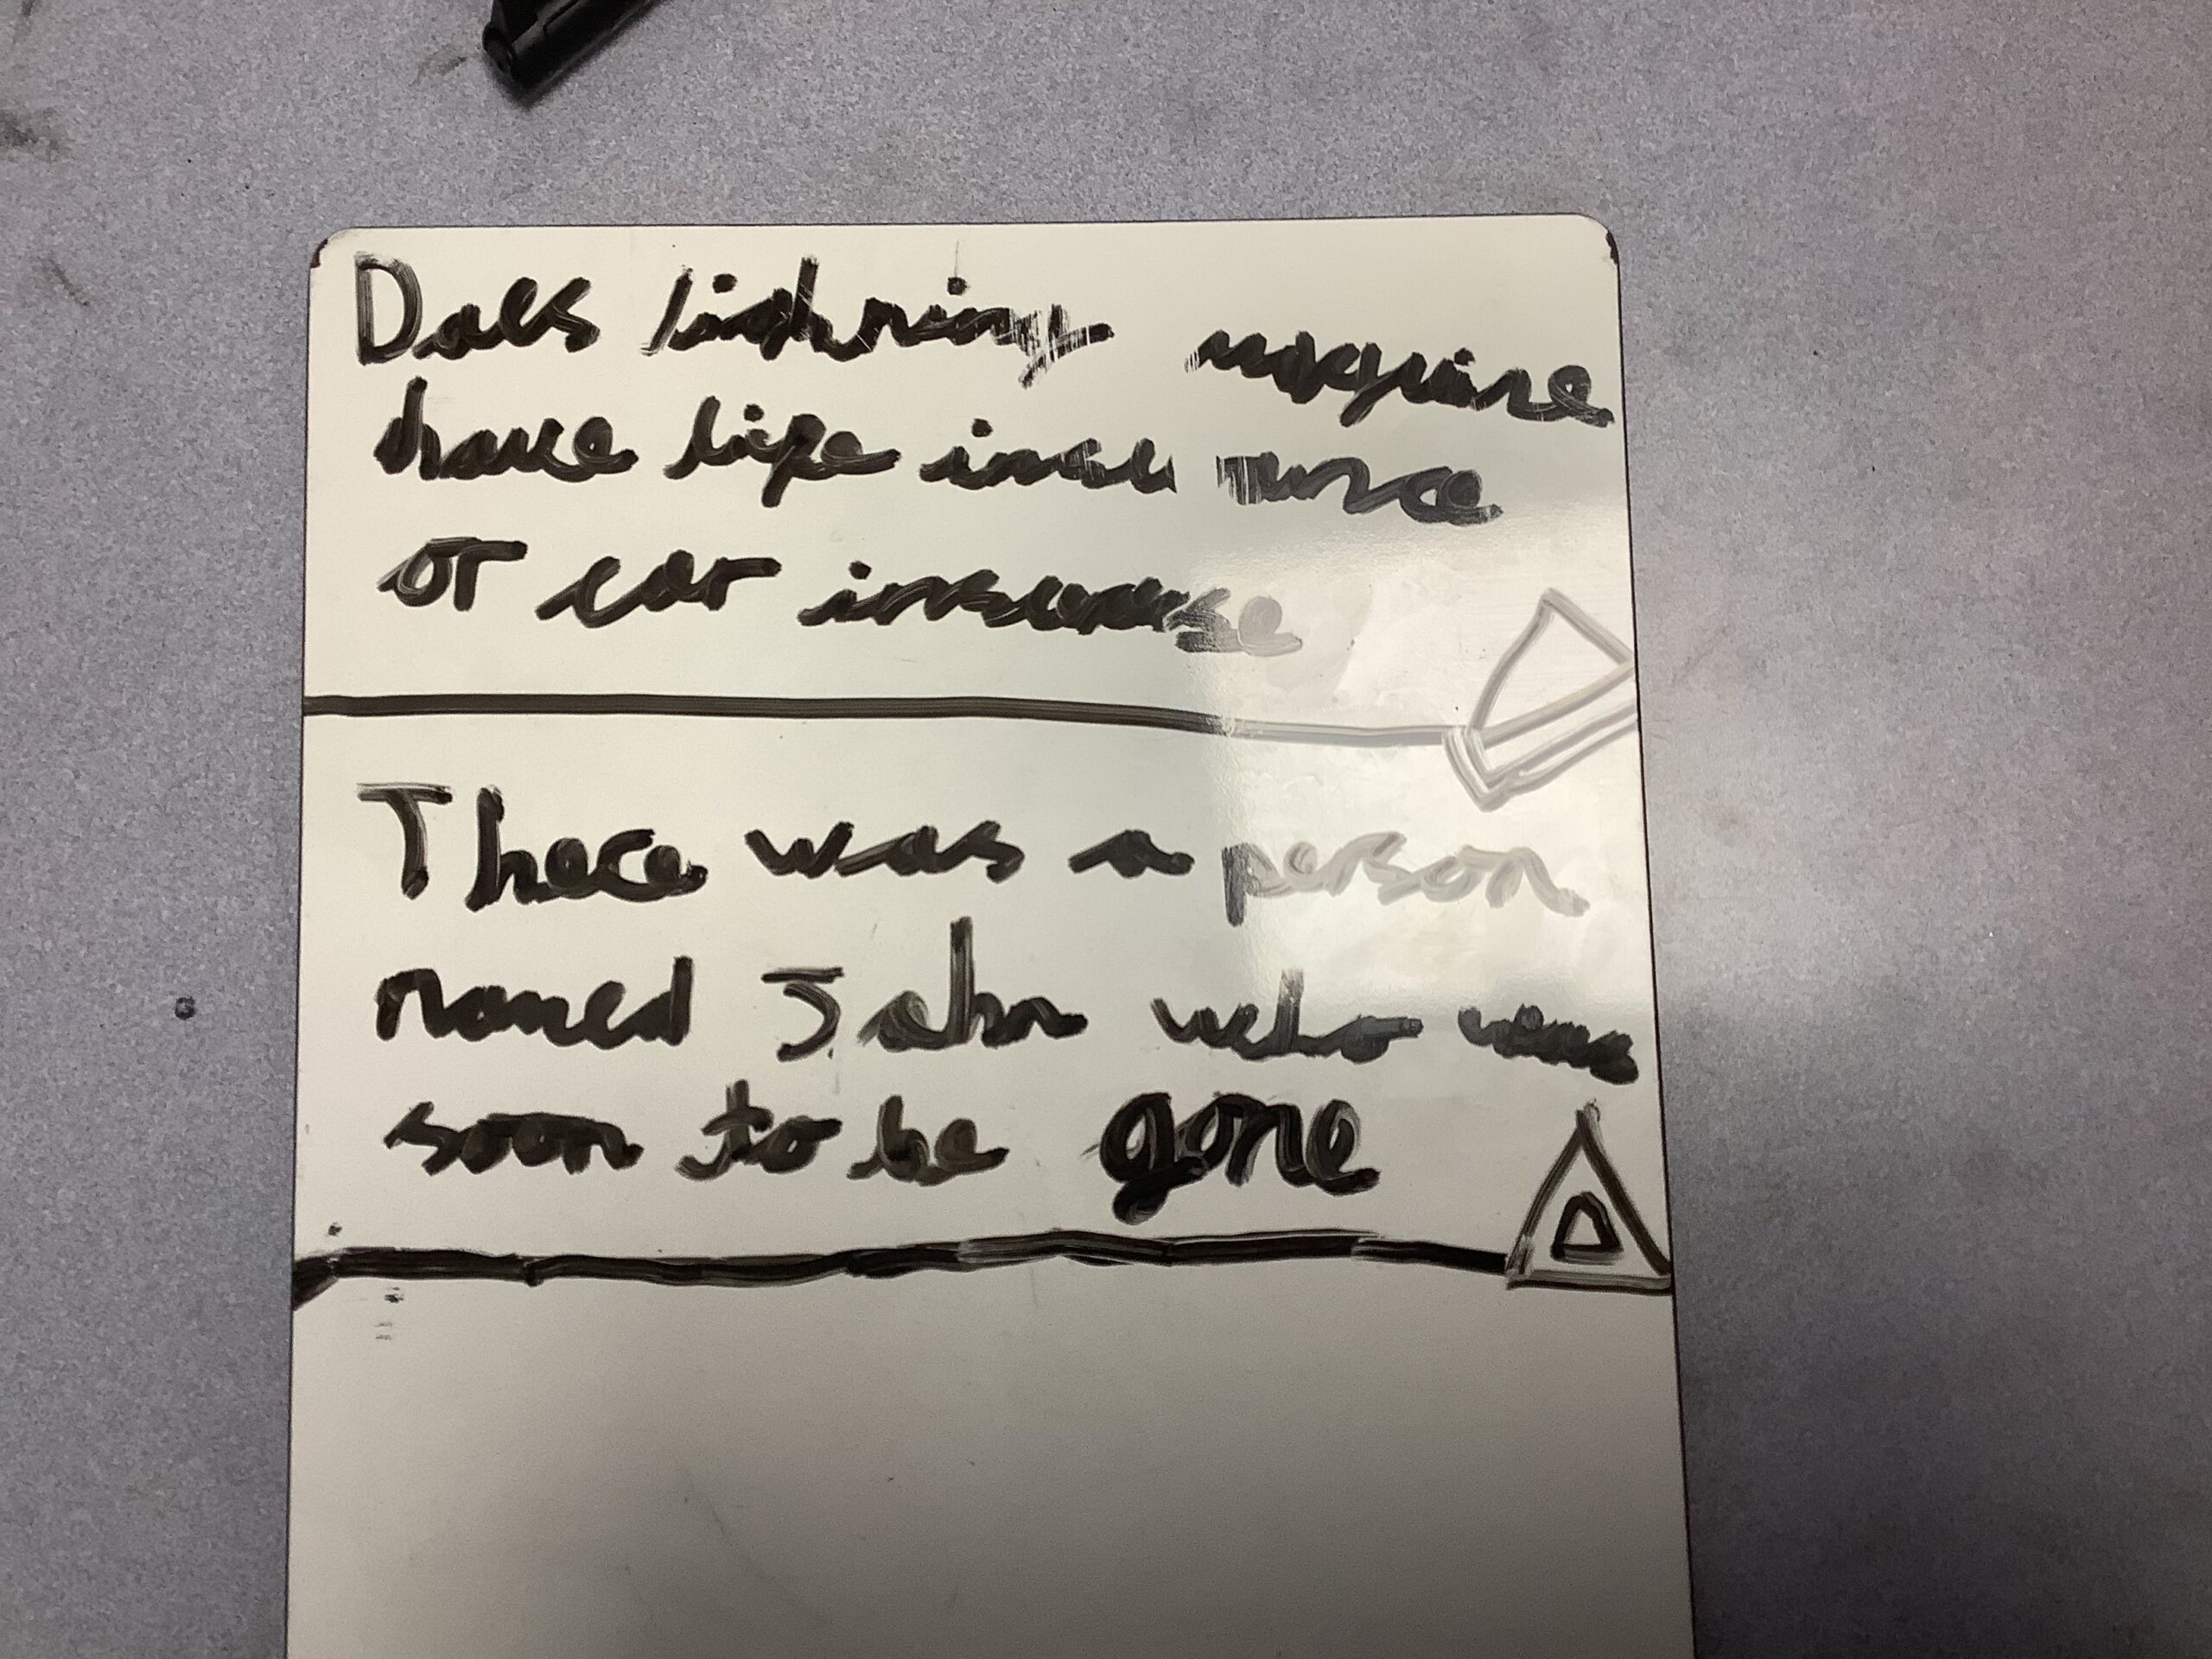 Does lightning mcquine
have life insurance
or car insuranse
There was a person
named John who was
soon to be gone